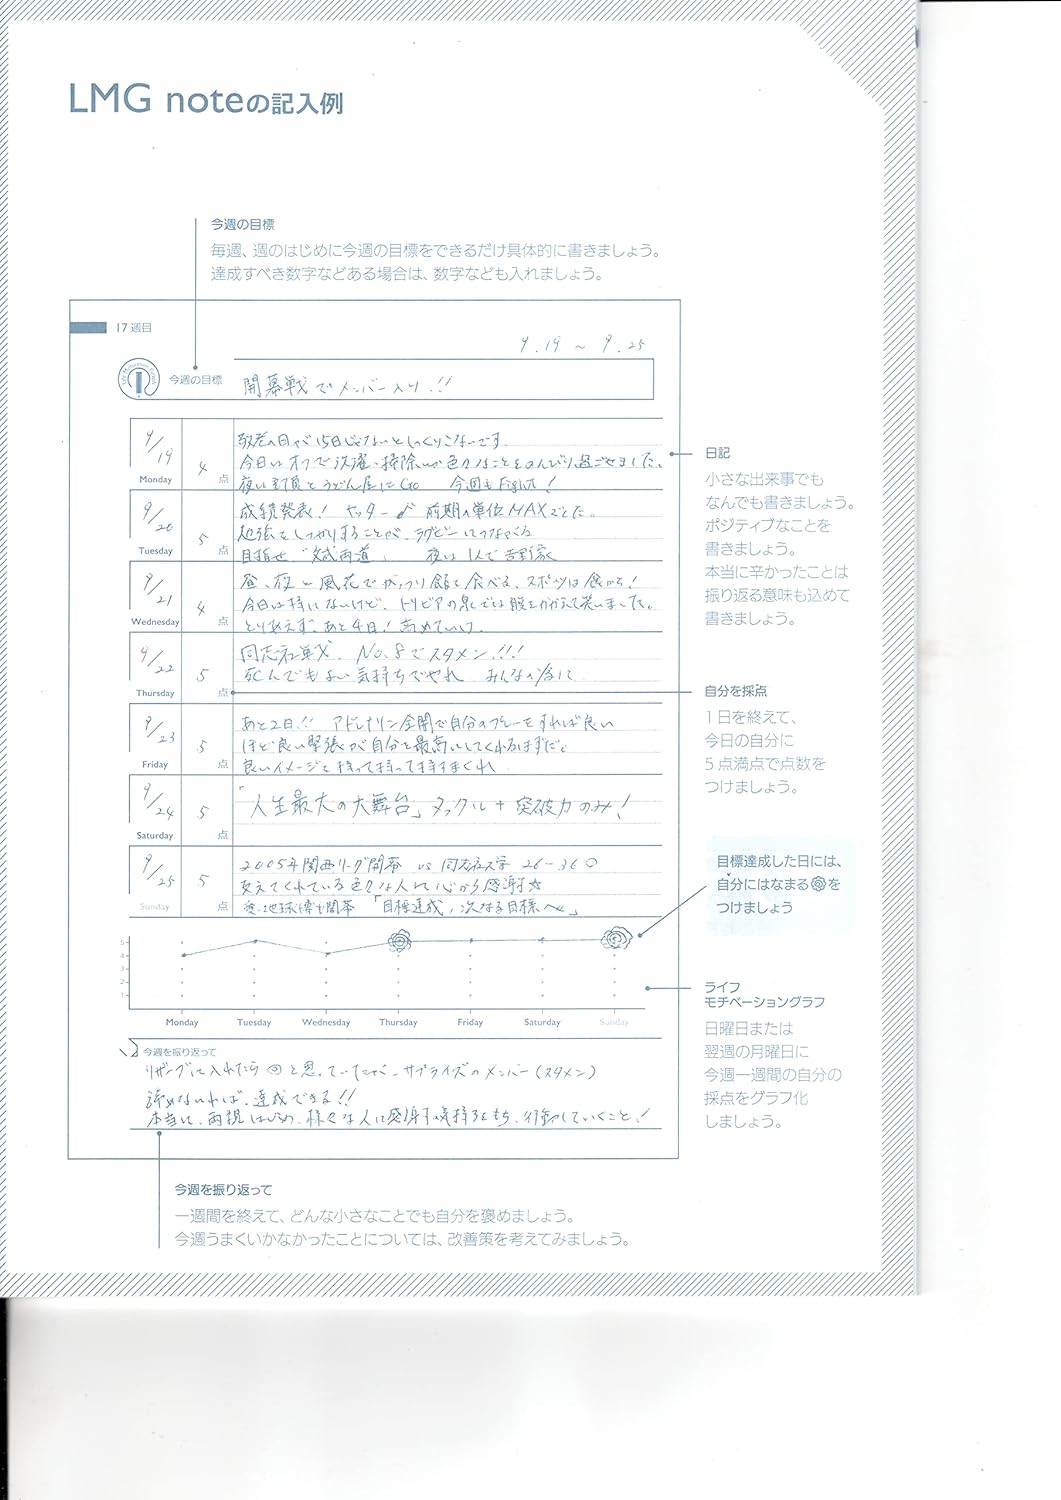 LMG noteの記入例
今週の目標
毎週、週のはじめに今週の目標をできるだけ具体的に書きましょう。
達成すべき数字などある場合は、数字なども入れましょう。
17週目
9.19 〜 9.25
今週の目標
開幕戦でメンバー入り!!
9/19
Monday
4点
敬老の日が15日じゃないとしっくりこないです。
今日はオフで洗濯・掃除 色々なことをのんびり過ごせました。
夜は とうどん屋にGo 今週もFight!
9/20
Tuesday
5点
成績発表! ヤッター♪ 前期の単位MAXでとた。
勉強をしっかりすることが、ラグビーにつながる
目指せ「文武両道」 夜は1人で吉野家
9/21
Wednesday
4点
昼、夜と風花でがっつり飯を食べる、スポーツは食から!
今日は特にないけど、トリビアの泉では腹をかかえて笑いました。
とりあえず、あと4日! 高めていけ
9/22
Thursday
5点
同志社戦、No.8でスタメン!!!
死んでもよい気持ちでやれ みんなの為に
9/23
Friday
5点
あと2日!! アドレナリン全開で自分のプレーをすれば良い
ほど良い緊張が自分を最高にしてくれるはずだ。
良いイメージを持って持って持ちまくれ
9/24
Saturday
5点
「人生最大の大舞台」タックル+突破力のみ!
9/25
Sunday
5点
2005年関西リーグ開幕 vs 同志社大学 26-36○
支えてくれている色々な人に心から感謝☆
愛・地球博も閉幕 「目標達成,次なる目標へ」
5
4
3
2
1
Monday Tuesday Wednesday Thursday Friday Saturday Sunday
今週を振り返って
リザーブに入れたら と思っていたが、サプライズのメンバー(スタメン)
諦めないれば、達成できる!!
本当に、両親はじめ、様々な人に感謝する気持ちをもち、行動していくこと!
日記
小さな出来事でも
なんでも書きましょう。
ポジティブなことを
書きましょう。
本当に辛かったことは
振り返る意味も込めて
書きましょう。
自分を採点
1日を終えて、
今日の自分に
5点満点で点数を
つけましょう。
目標達成した日には、
自分にはなまるを
つけましょう
ライフ
モチベーショングラフ
日曜日または
翌週の月曜日に
今週一週間の自分の
採点をグラフ化
しましょう。
今週を振り返って
一週間を終えて、どんな小さなことでも自分を褒めましょう。
今週うまくいかなかったことについては、改善策を考えてみましょう。